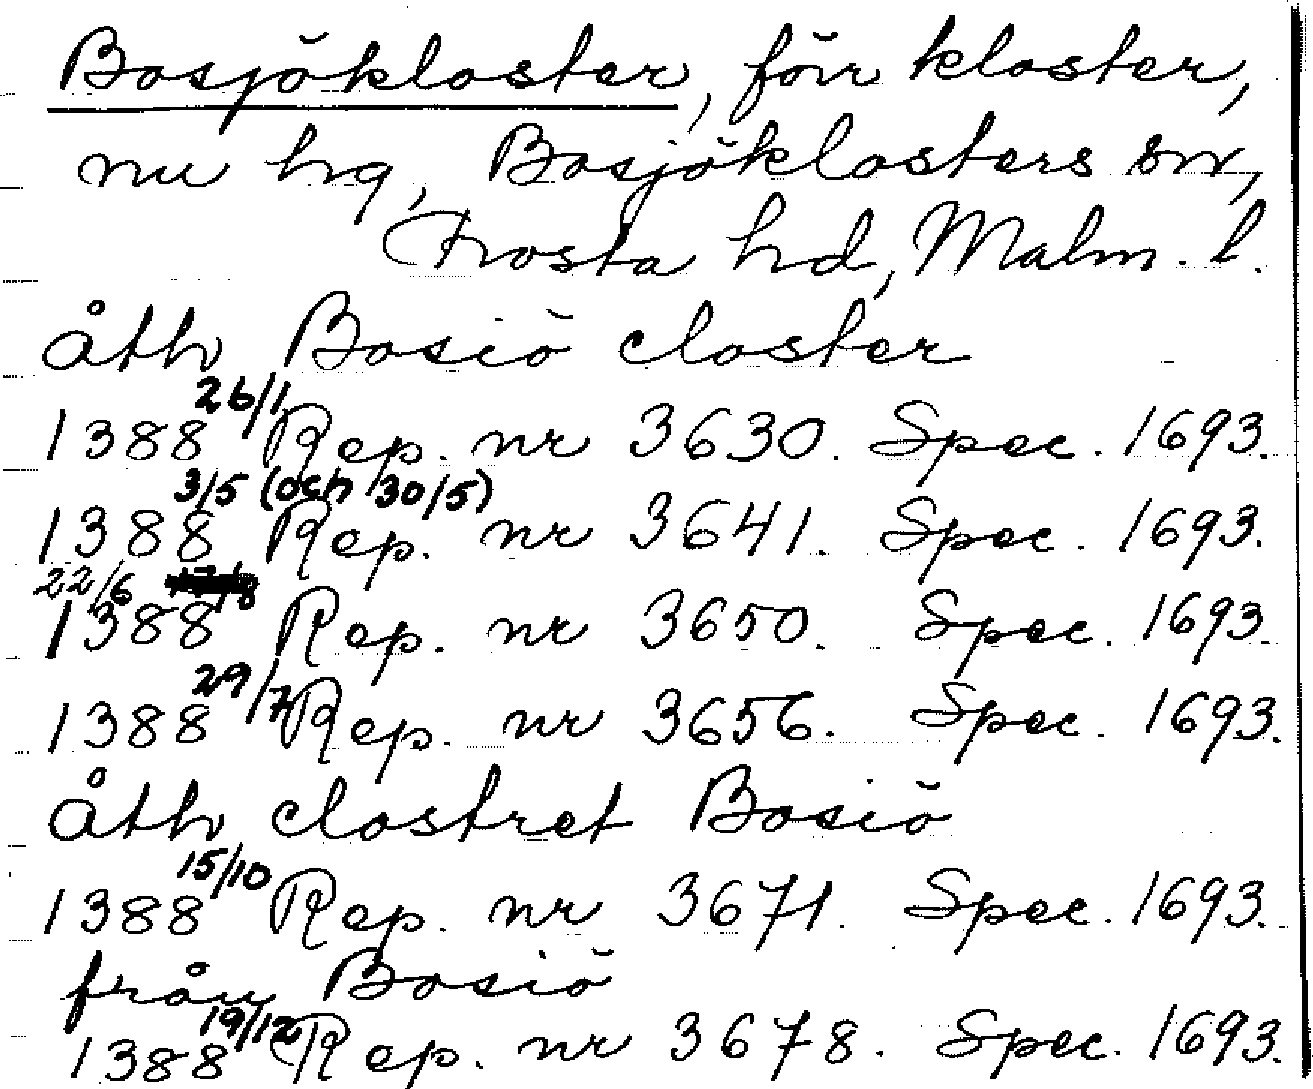 Bosjökloster, förr kloster,
nu hg, Bosjöklosters sn,
Frosta hd, Malm. l.
åth Bosiö closter
26/1
1388 Rep. nr 3630. Spec. 1693.
3/5 (och 30/5)
1388 Rep. nr 3641. Spec. 1693.
22/6
1388 Rep. nr 3650. Spec. 1693.
29/7
1388 Rep. nr 3656. Spec. 1693.
åth clostret Bosiö
15/10
1388 Rep. nr 3671. Spec. 1693.
från Bosiö
19/12
1388 Rep. nr 3678. Spec. 1693.